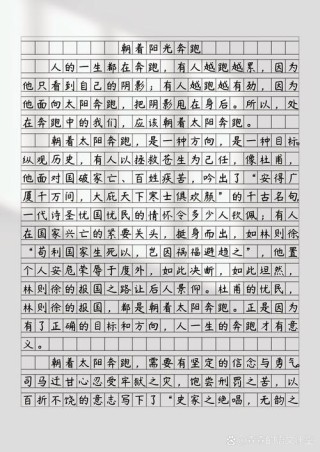 朝着阳光奔跑
人的一生都在奔跑，有人越跑越累，因为
他只看到自己的阴影；有人越跑越有劲，因为
他面向太阳奔跑，把阴影甩在身后。所以，处
在奔跑中的我们，应该朝着太阳奔跑。
朝着太阳奔跑，是一种方向，是一种目标。
纵观历史，有人以拯救苍生为己任，像杜甫，
他面对国破家亡、百姓疾苦，吟出了“安得广
厦千万间，大庇天下寒士俱欢颜”的千古名句，
一代诗圣忧国忧民的情怀令多少人钦佩；有人
在国家兴亡的紧要关头，挺身而出，如林则徐
“苟利国家生死以，岂因祸福避趋之”，他置
个人安危荣辱于度外，如此决断，如此坦然，
林则徐的报国之路让后人景仰。杜甫的忧民，
林则徐的报国，都是朝着太阳奔跑。正是因为
有了正确的目标和方向，人一生的奔跑才有意
义。
朝着太阳奔跑，需要有坚定的信念与勇气。
司马迁甘心忍受牢狱之灾，饱尝刑罚之苦，以
百折不饶的意志写下了“史家之绝唱，无韵之